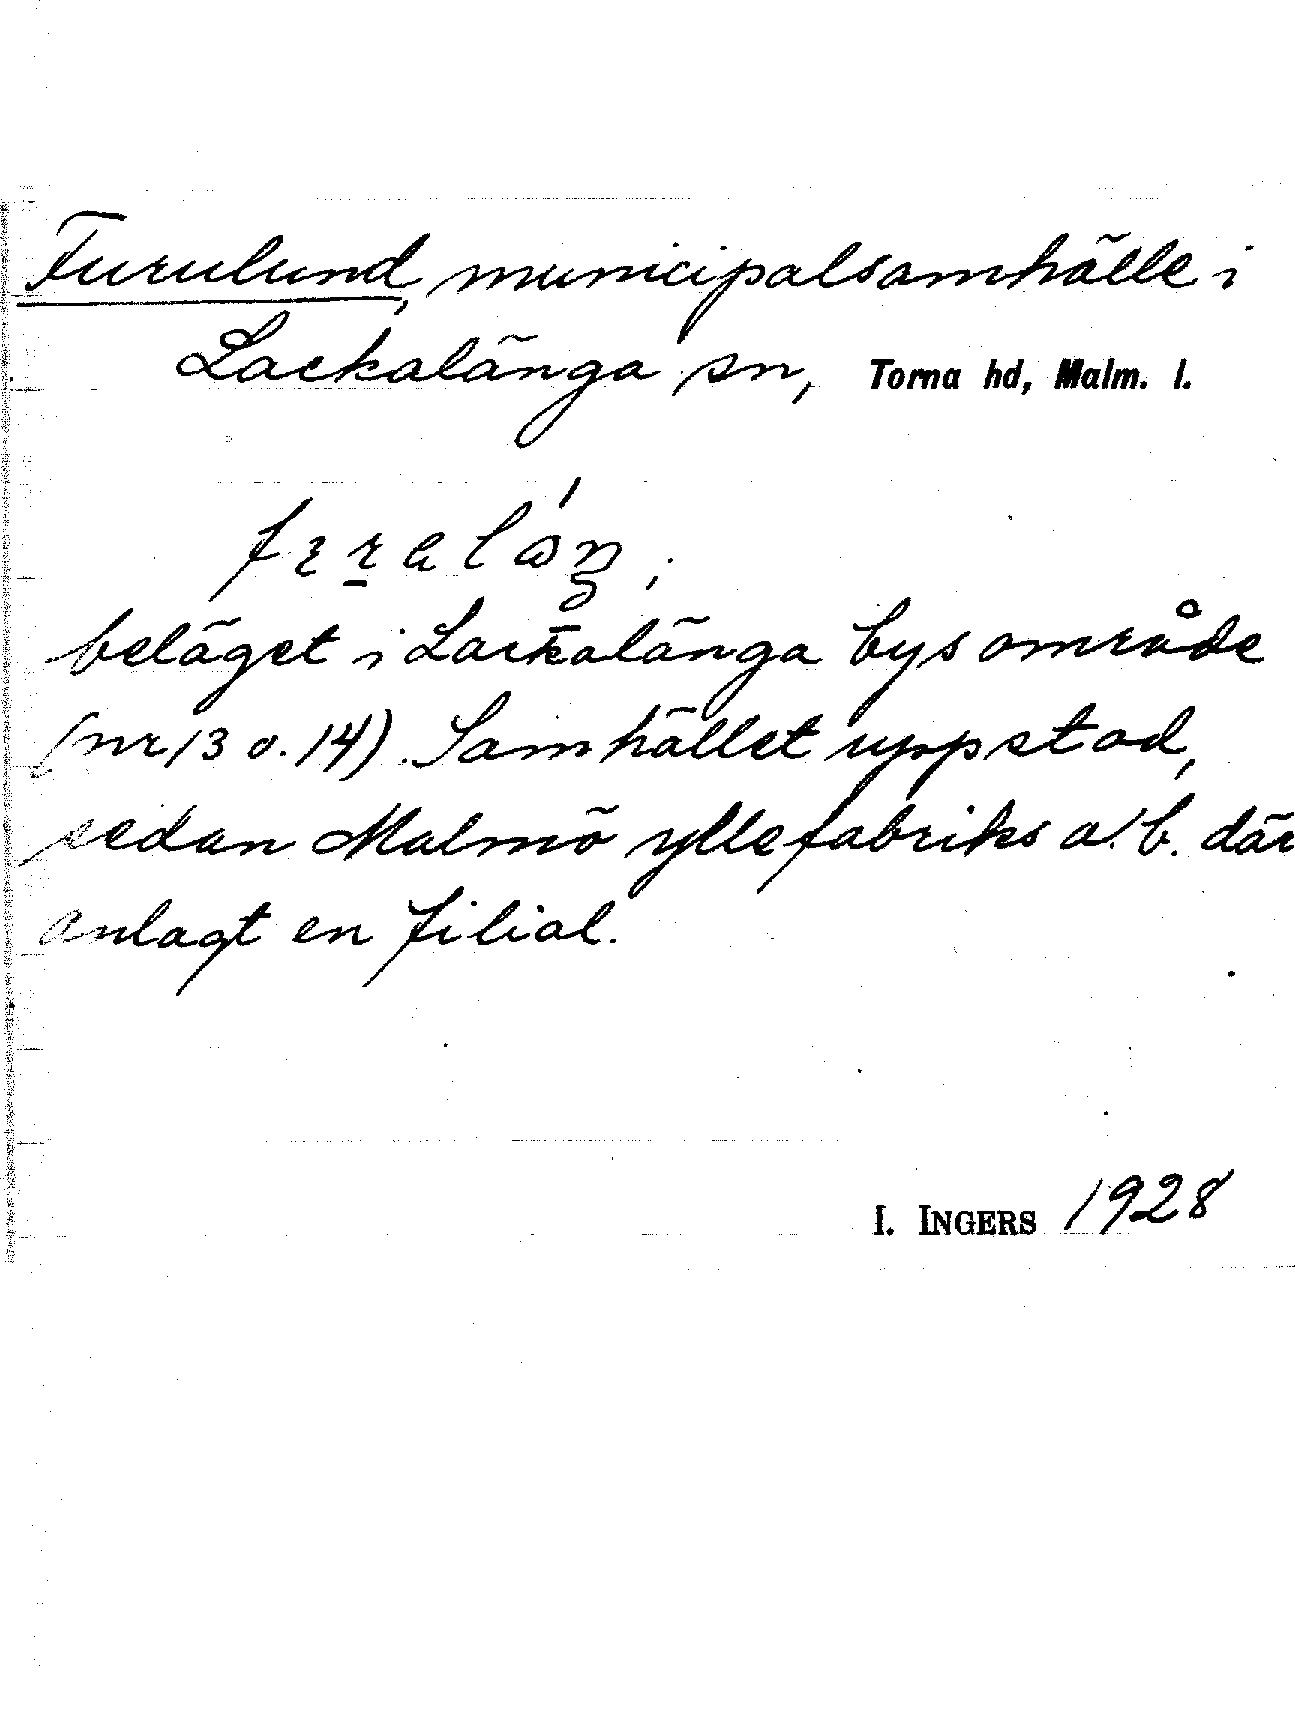 Furulund, municipalsamhälle i
Lackalänga sn, Torna hd, Malm. l.
beläget i Lackalänga bys område
(nr 13 o. 14). Samhället uppstod,
sedan Malmö yllefabriks a.b. där
anlagt en filial.
I. INGERS 1928